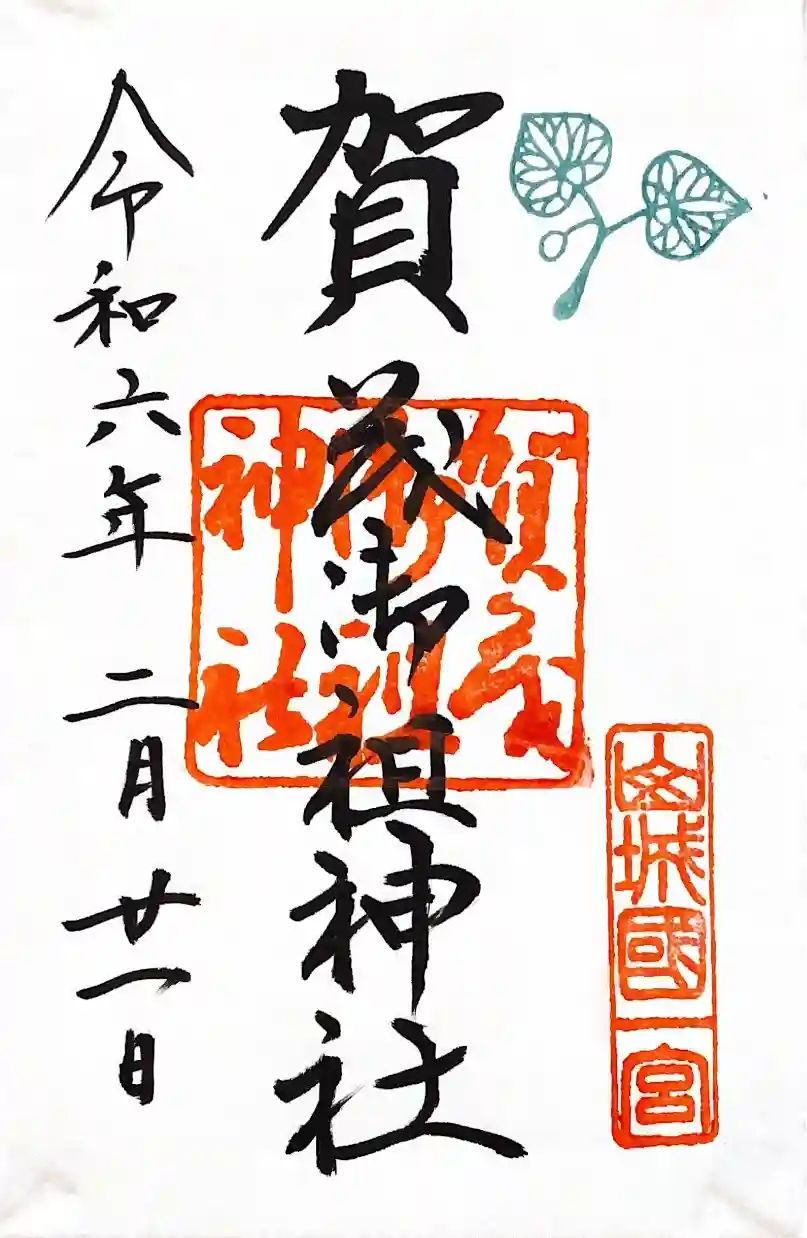 山城國一宮
賀茂御祖神社
賀茂
御祖
神社
令和六年 二月廿一日